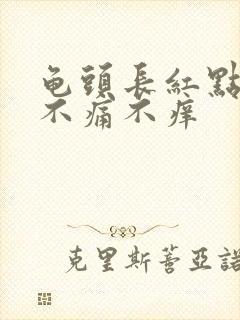 龟頭長紅點
不痛不痒
克里斯蒼亞諾